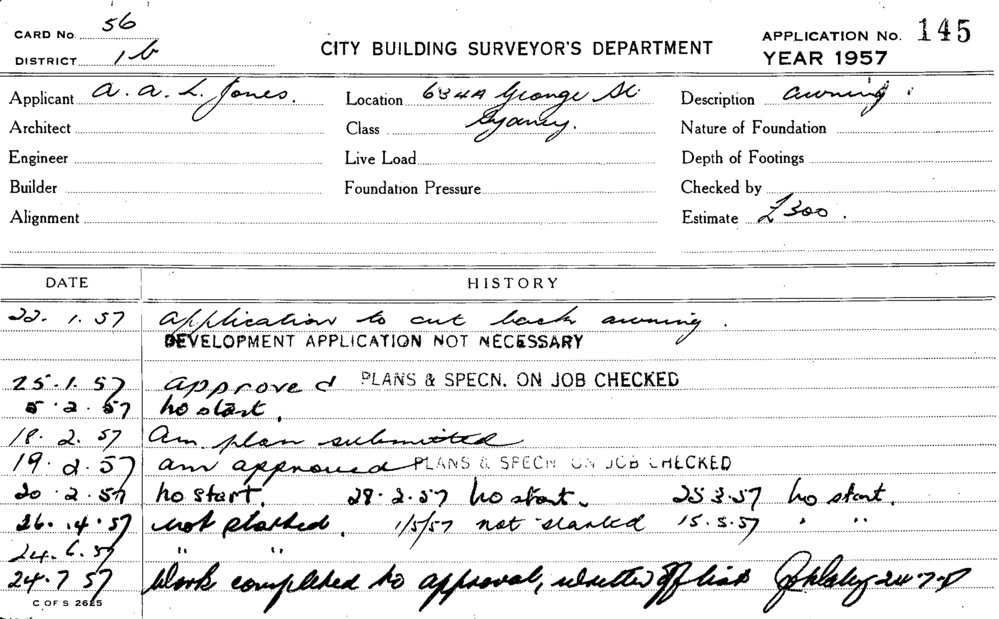 CARD No. 56
DISTRICT 1b
CITY BUILDING SURVEYOR'S DEPARTMENT
APPLICATION No. 145
YEAR 1957
Applicant A. A. L. Jones. Location 634A George St Description awning
Architect Class Sydney. Nature of Foundation
Engineer Live Load Depth of Footings
Builder Foundation Pressure Checked by
Alignment Estimate £300.
DATE HISTORY
22. 1. 57 Application to cut back awning.
DEVELOPMENT APPLICATION NOT NECESSARY
25.1.57 approved PLANS & SPECN. ON JOB CHECKED
5.2.57 No start.
18. 2. 57 Am plan submitted
19.2.57 am approved PLANS & SPECN ON JOB CHECKED
20.2.57 No start. 28.2.57 No start. 25 3.57 No start.
26.4.57 not started. 1/5/57 not started 15.5.57 " "
24.6.57 " "
24.7 57 Work completed to approval, written off list 24-7-57
C OF S 2625